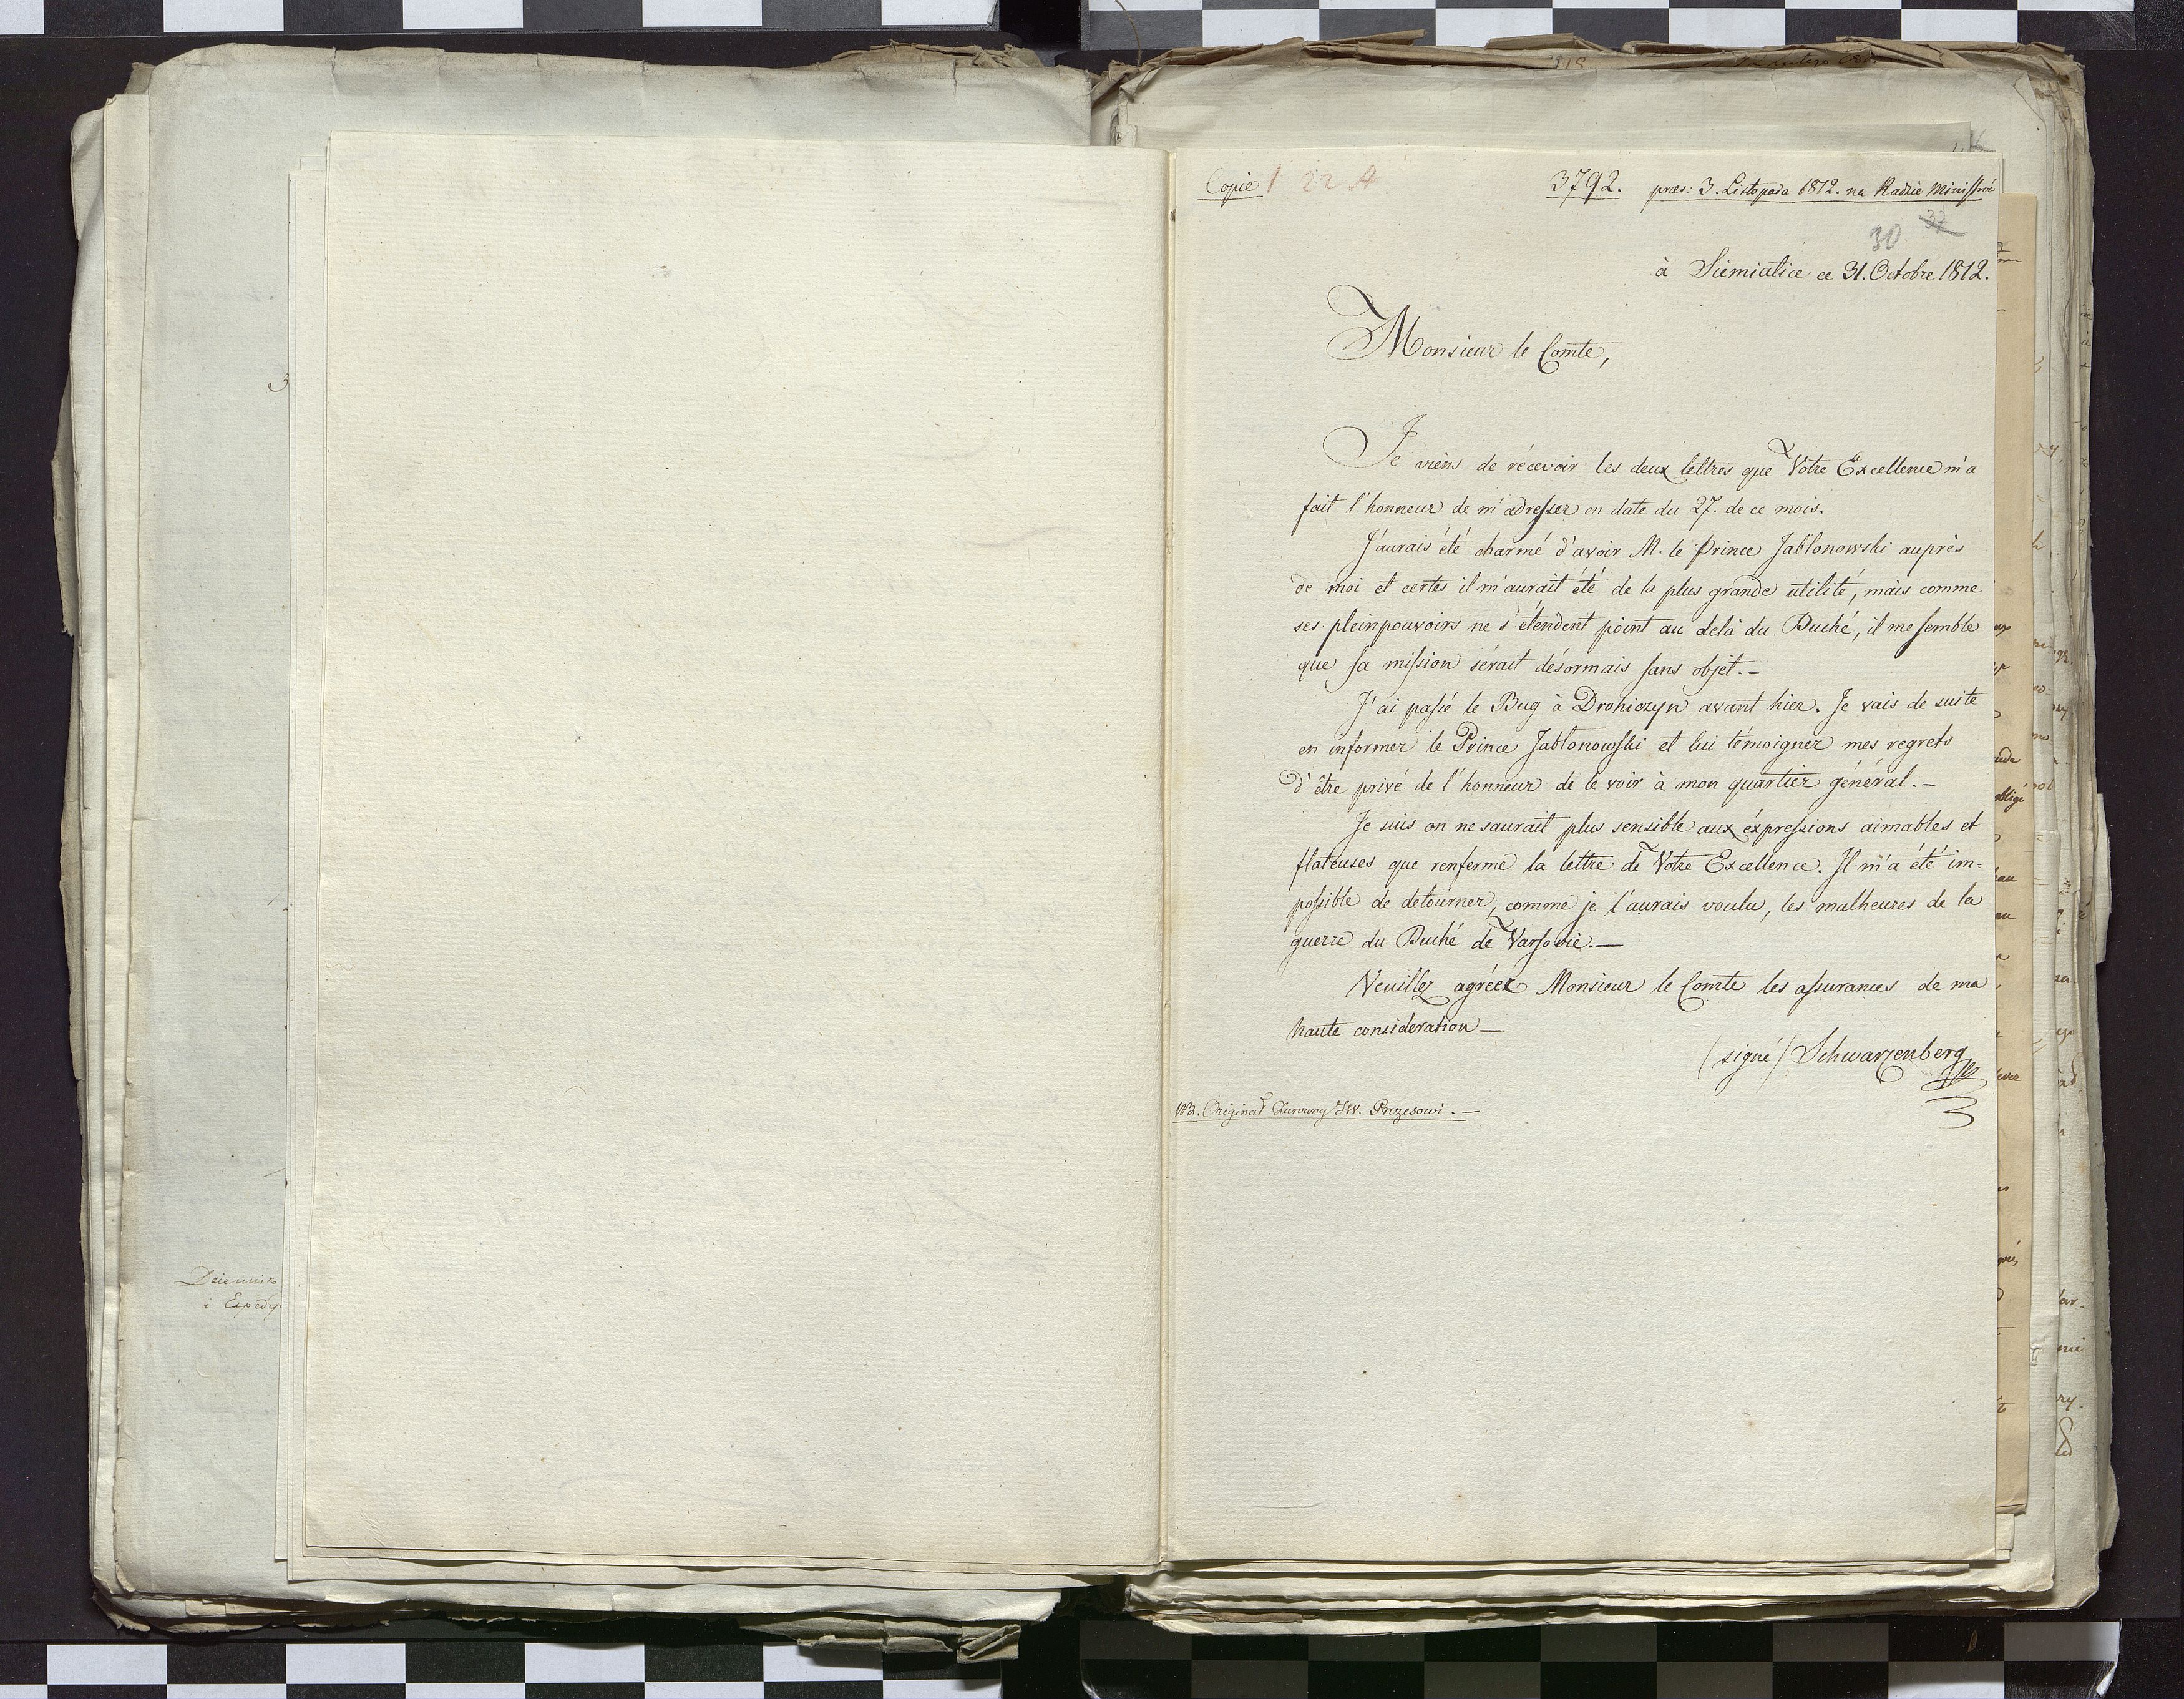 Copie / 22 A 3792. præs: 3. Listopada 1812. na Radzie Ministrów
30 37
à Siemiatice ce 31. Octobre 1812.
Monsieur le Comte,
Je viens de récevoir les deux lettres que Votre Excellence m'a
fait l'honneur de m'adresser en date du 27. de ce mois.
J'aurais été charmé d'avoir M. le Prince Jablonowski auprès
de moi et certes il m'aurait été de la plus grande utilité, mais comme
ses pleinpouvoirs ne s'étendent point au delà du Duché, il me semble
que sa mission sérait désormais sans objet. —
J'ai passé le Bug à Drohiczyn avant hier. Je vais de suite
en informer le Prince Jablonowski et lui témoigner mes regrets
d'être privé de l'honneur de le voir à mon quartier général. —
Je suis on ne saurait plus sensible aux éxpressions aimables et
flateuses que renferme la lettre de Votre Excellence. Il m'a été im-
possible de détourner, comme je l'aurais voulu, les malheures de la
guerre du Duché de Varsovie. —
Veuillez agréer Monsieur le Comte les assurances de ma
haute consideration —
(signé) Schwarzenberg
NB. Originał JW. Prezesowi. —
Dziennik
i Expedy